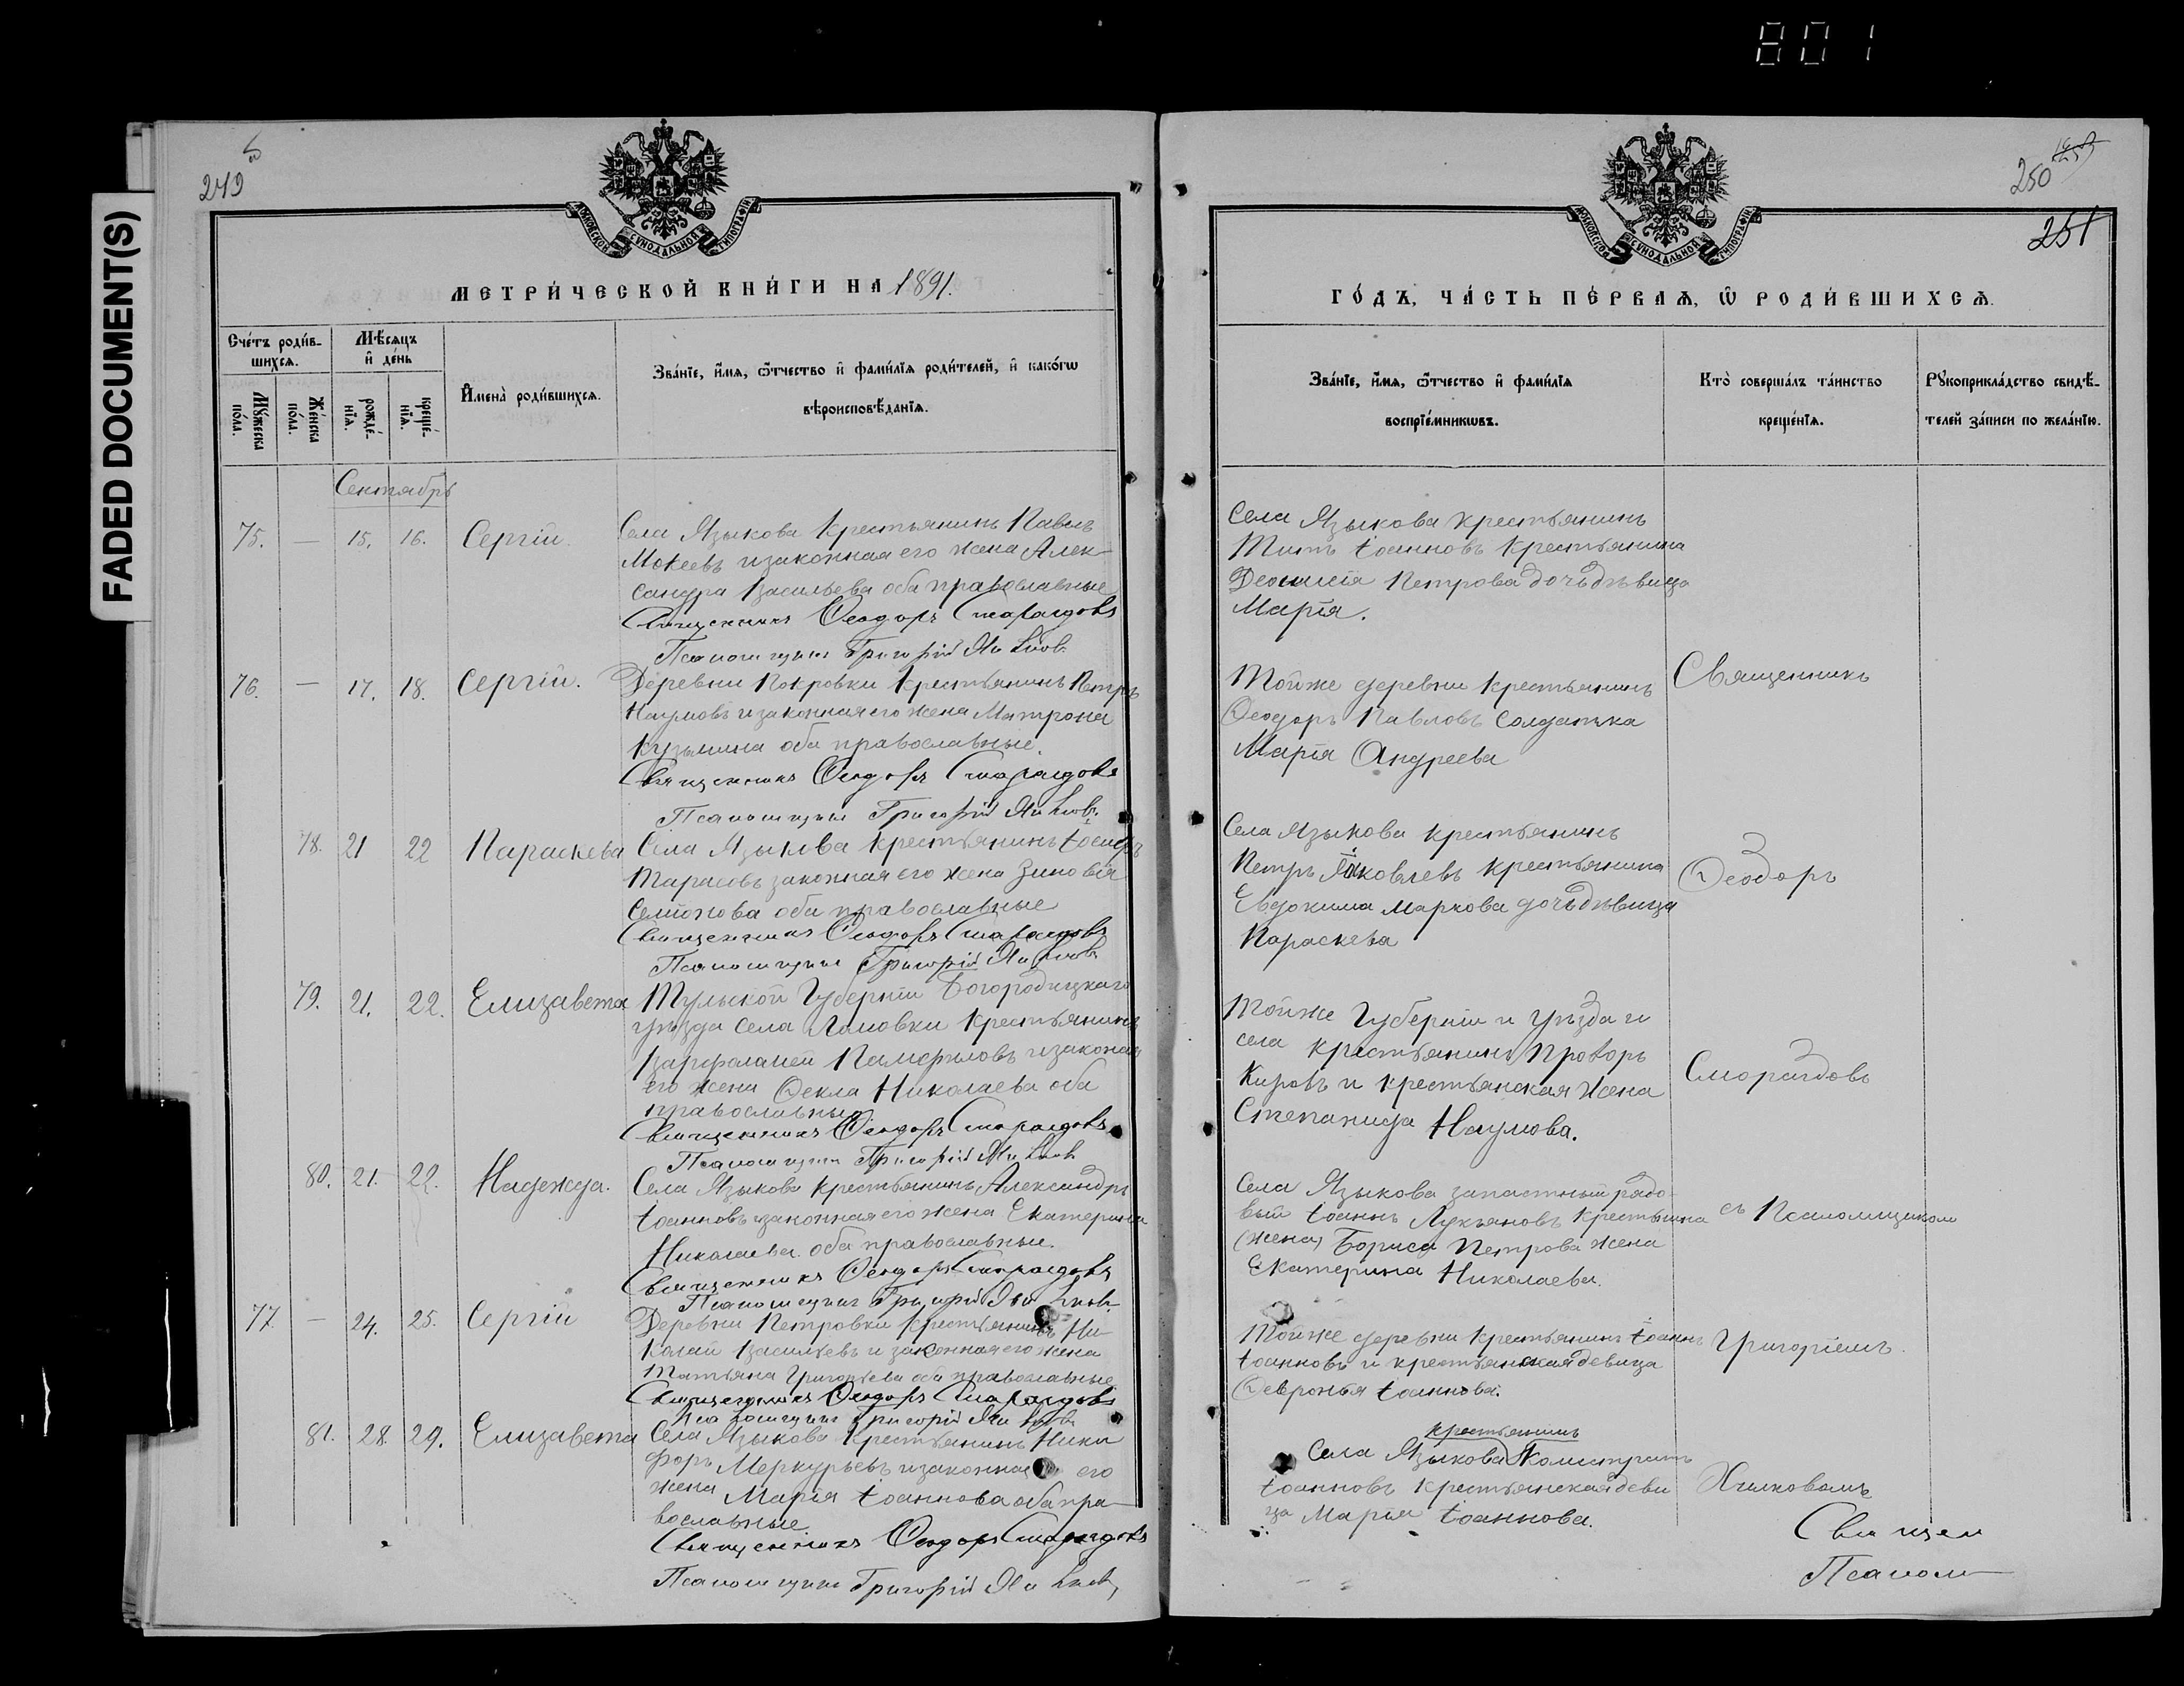 801
FADED DOCUMENT(S)
249
МОСКОВСКОЙ СѴНОДАЛЬНОЙ ТИПОГРАФІИ
МЕТРИ́ЧЕСКОЙ КНИ́ГИ НА 1891.
Сче́тъ роди́в-
шихсѧ.
Мѣ́сѧцъ
и҆ де́нь
Мꙋ́жеска по́ла.
Же́нска по́ла.
рожде́-
нїѧ.
креще́-
нїѧ.
И҆мена̀ роди́вшихсѧ.
Зва́нїе, и҆́мѧ, ѻ҆́тчество и҆ фами́лїѧ роди́телей, и҆ како́гѡ
вѣроисповѣ́данїѧ.
Сентябрь
75. — 15. 16. Сергій.
Села Языкова крестьянинъ Павелъ
Мокеевъ и законная его жена Алек-
сандра Васильева оба православные
Священникъ Ѳеодоръ Смарагдовъ
Псаломщикъ Григорій
76. — 17. 18. Сергій.
Деревни Покровки крестьянинъ Петръ
Наумовъ и законная его жена Матрона
Кузьмина оба православные.
Священникъ Ѳеодоръ Смарагдовъ
Псаломщикъ Григорій
78. 21 22 Параскева
Села Языкова крестьянинъ Іосифъ
Тарасовъ законная его жена Зиновія
Семіонова оба православные
Священникъ Ѳеодоръ Смарагдовъ
Псаломщикъ Григорій
79. 21. 22. Елизавета
Тульской Губерніи Богородицкаго
уѣзда села Ломовки крестьянинъ
Варфоломей Памфиловъ и законая
его жена Ѳекла Николаева оба
православные
Священникъ Ѳеодоръ Смарагдовъ
Псаломщикъ Григорій
80. 21. 22. Надежда.
Села Языкова крестьянинъ Александръ
Іоанновъ законная его жена Екатерина
Николаева оба православные.
Священникъ Ѳеодоръ Смарагдовъ
Псаломщикъ Григорій
77. — 24. 25. Сергій
Деревни Петровки крестьянинъ Ни-
колай Васильевъ и законная его жена
Татьяна Григорьева оба православные
Священникъ Ѳеодоръ Смарагдовъ
Псаломщикъ Григорій
81. 28. 29. Елизавета
Села Языкова крестьянинъ Ники
форъ Меркурьевъ и законная его
жена Марія Іоаннова оба пра-
вославные
Священникъ Ѳеодоръ Смарагдовъ
Псаломщикъ Григорій
250
251
МОСКОВСКОЙ СѴНОДАЛЬНОЙ ТИПОГРАФІИ
ГО́ДЪ, ЧА́СТЬ ПЕ́РВАѦ, Ѡ҆ РОДИ́ВШИХСѦ.
Зва́нїе, и҆́мѧ, ѻ҆́тчество и҆ фами́лїѧ
воспрїе́мникѡвъ.
Кто̀ соверша́лъ та́инство
креще́нїѧ.
Рꙋкоприкла́дство свидѣ́-
телей за́писи по жела́нїю.
Села Языкова крестьянинъ
Титъ Іоанновъ крестьянина
Петрова дочь дѣвица
Марія.
Тойже деревни крестьянинъ
Ѳеодоръ Павловъ Солдатка
Марія Андреева
Села Языкова крестьянинъ
Петръ Яковлевъ крестьянина
Евдокима Маркова дочь дѣвица
Параскева
Тойже Губерніи и Уѣзда и
села крестьянинъ Прохоръ
Кировъ и крестьянская жена
Степанида Наумова.
Села Языкова запастный рядо-
вый Іоаннъ Лукьяновъ крестьянина
(жена) Бориса Петрова жена
Екатерина Николаева.
Тойже деревни крестьянинъ Іоаннъ
Іоанновъ и крестьянская девица
Ѳевронья Іоаннова.
крестьянинъ
Села Языкова
Іоанновъ крестьянская деви
ца Марія Іоаннова.
Священникъ
Ѳеодоръ
Смарагдовъ
съ Псаломщикомъ
Григоріемъ
Хилковымъ
Священ
Псалом